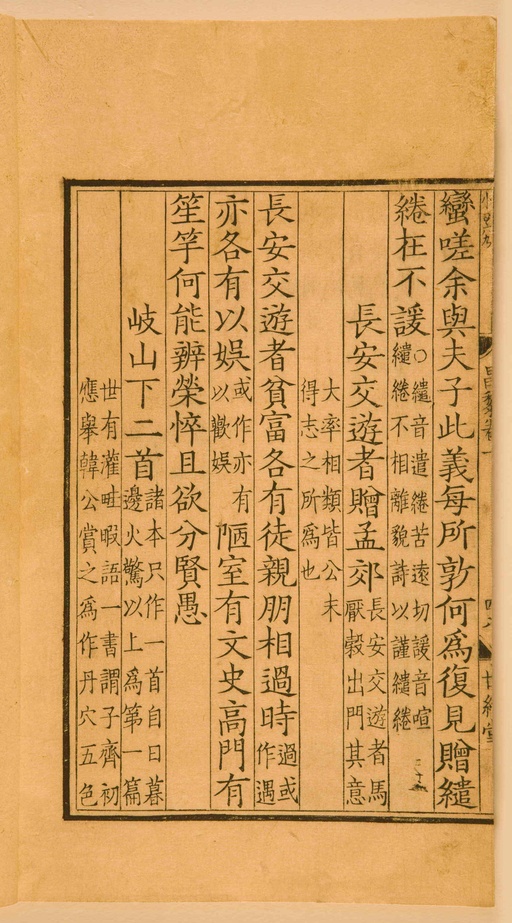 蠻嗟余與夫子此義每所敦何爲復見贈繾
綣在不諼○繾音遣綣苦遠切諼音喧繾綣不相離貌詩以謹繾綣
長安交遊者贈孟郊長安交遊者馬厭穀出門其意
大率相類皆公未得志之所爲也
長安交遊者貧富各有徒親朋相過時過或作遇
亦各有以娛或作亦有以歡娛陋室有文史高門有
笙竽何能辨榮悴且欲分賢愚
岐山下二首諸本只作一首自日暮邊火驚以上爲第一篇
世有灌畦暇語一書謂子齊初應舉韓公賞之爲作丹穴五色